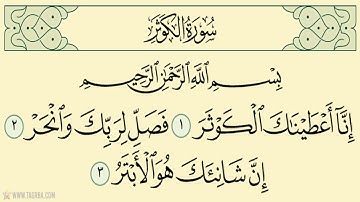 سُورَةُ الكَوْثَرِ
بِسْمِ اللَّهِ الرَّحْمَٰنِ الرَّحِيمِ
إِنَّآ أَعْطَيْنَٰكَ ٱلْكَوْثَرَ ١ فَصَلِّ لِرَبِّكَ وَٱنْحَرْ ٢
إِنَّ شَانِئَكَ هُوَ ٱلْأَبْتَرُ ٣
WWW.TAGRBA.COM